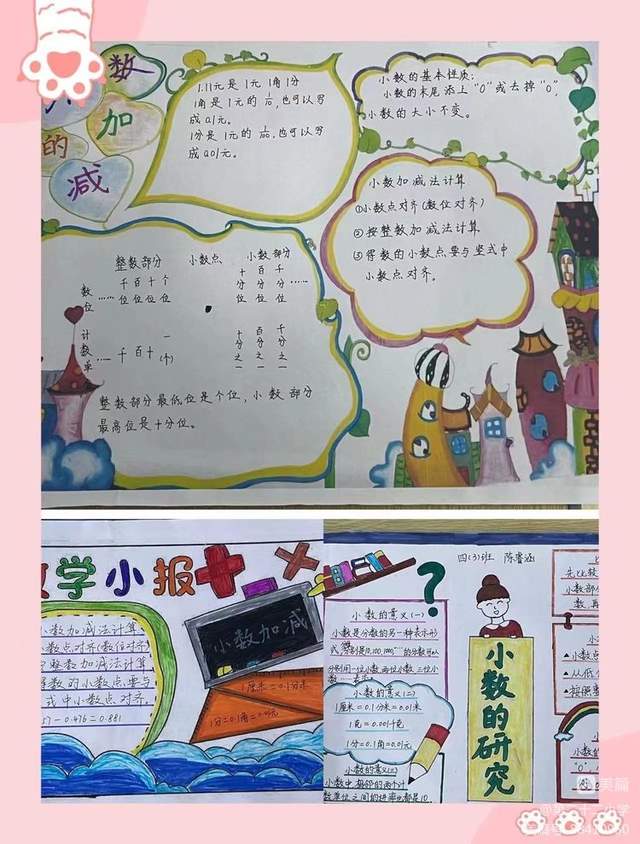 数
加
的
减
1.11元是1元1角1分
1角是1元的1/10,也可以写
成0.1元。
1分是1元的1/100,也可以写
成0.01元。
小数的基本性质:
小数的末尾添上“0”或去掉“0”,
小数的大小不变。
小数加减法计算
①小数点对齐(数位对齐)
②按整数加减法计算
③得数的小数点要与竖式中
小数点对齐。
整数部分 小数点 小数部分
数位 ……千位 百位 十位 个位 · 十分位 百分位 千分位……
计数单 ……千 百 十 一(个) 十分之一 百分之一 千分之一
整数部分最低位是个位,小数部分
最高位是十分位。
数学小报
小数加减法计算
小数点对齐(数位对齐)
整数加减法计算
得数的小数点要与
式中小数点对齐。
57-0.476=0.881
小数加减
1厘米=0.1分米
1分=0.1角=0.01元
四(3)班 陈睿涵
小数的意义(一)
小数是分数的另一种表示形
式 分母是10,100,1000…的分数可以
分别用一位小数 两位小数 三位小
小数的意义(二)
1厘米=0.1分米=0.01米
1克=0.001千克
1分=0.1角=0.01元
小数的意义(三)
小数中相邻的两个计
数单位之间的进率也都是10
小数的研究
先比较
小数部
数,再
▲小数点
▲从低
▲按照整
小数的
“0”
美篇